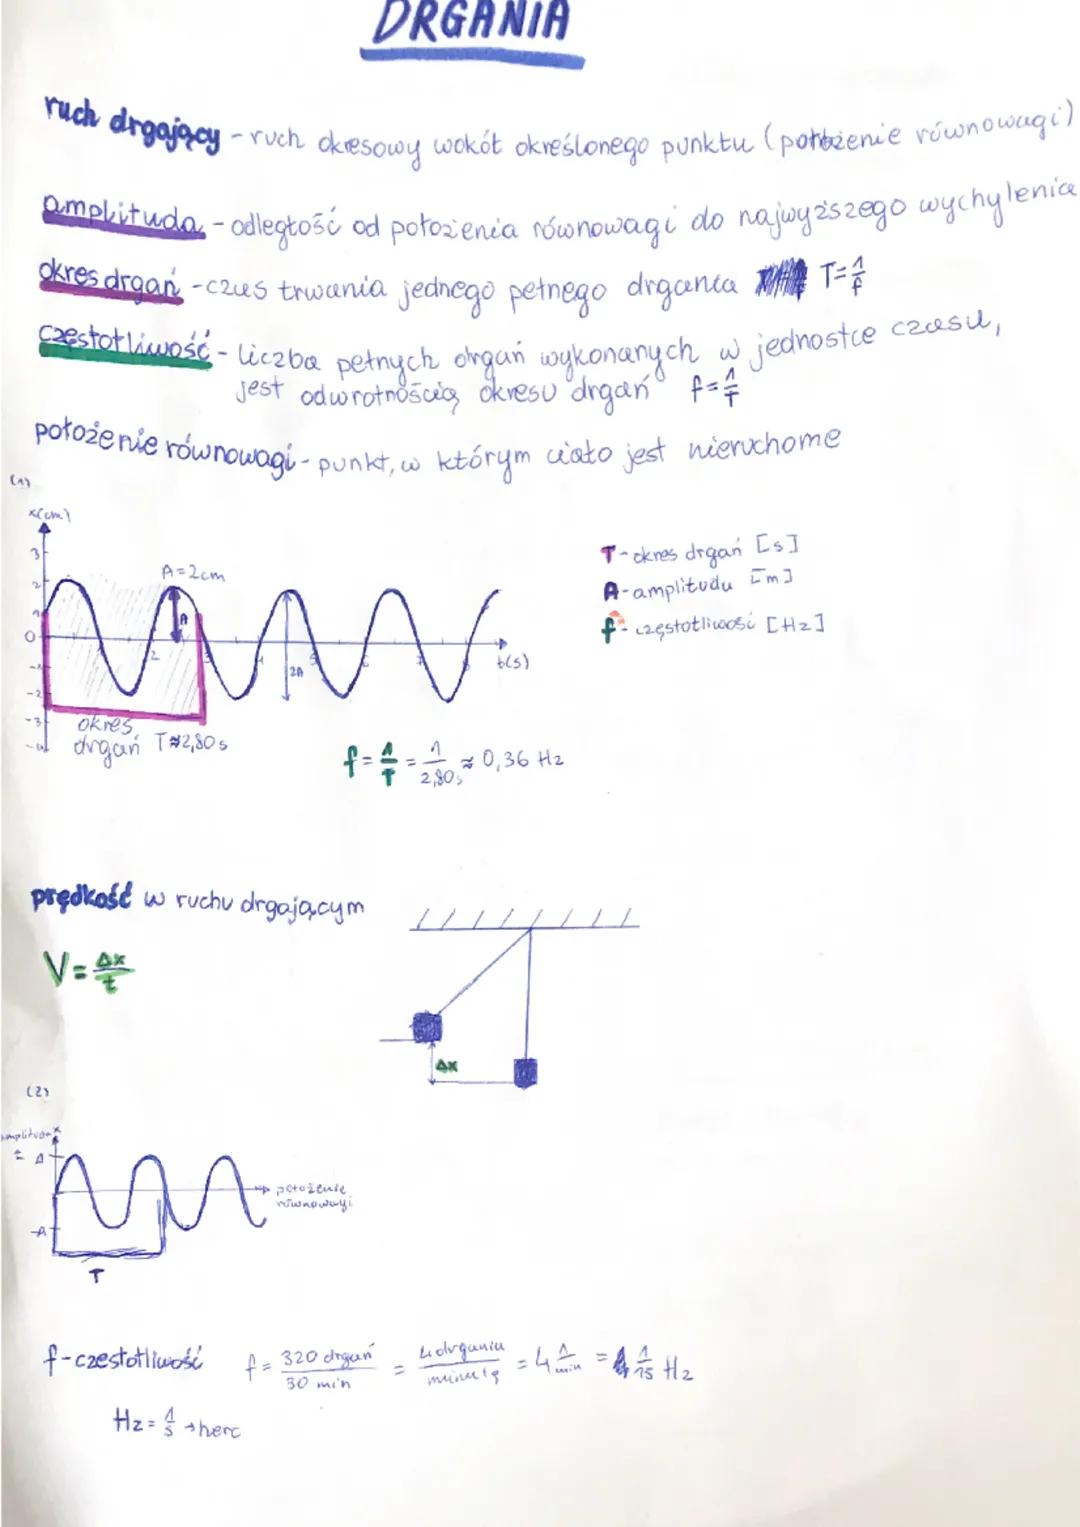 DRGANIA
ruch drgający - ruch okresowy wokół określonego punktu (położenie równowagi)
amplituda - odległość od położenia równowagi do najwyższego wychylenia
okres drgań - czas trwania jednego pełnego drgania T=1/f
częstotliwość - liczba pełnych drgań wykonanych w jednostce czasu,
jest odwrotnością okresu drgań f=1/T
położenie równowagi - punkt, w którym ciało jest nieruchome
(1)
x(cm)
3
2
1
0
-1
-2
-3
-4
A=2cm
A
2A
2 3 4 5 6 7 8
t(s)
okres
drgań T≈2,80s
T - okres drgań [s]
A - amplituda [m]
f - częstotliwość [Hz]
f=1/T=1/2,80s≈0,36 Hz
prędkość w ruchu drgającym
V=Δx/t
Δx
(2)
x
A
-A
położenie
równowagi
T
f-czestotliwość f = 320 drgań/30 min = 4 drgania/minutę = 4 1/min = 1/15 Hz
Hz = 1/s → herc